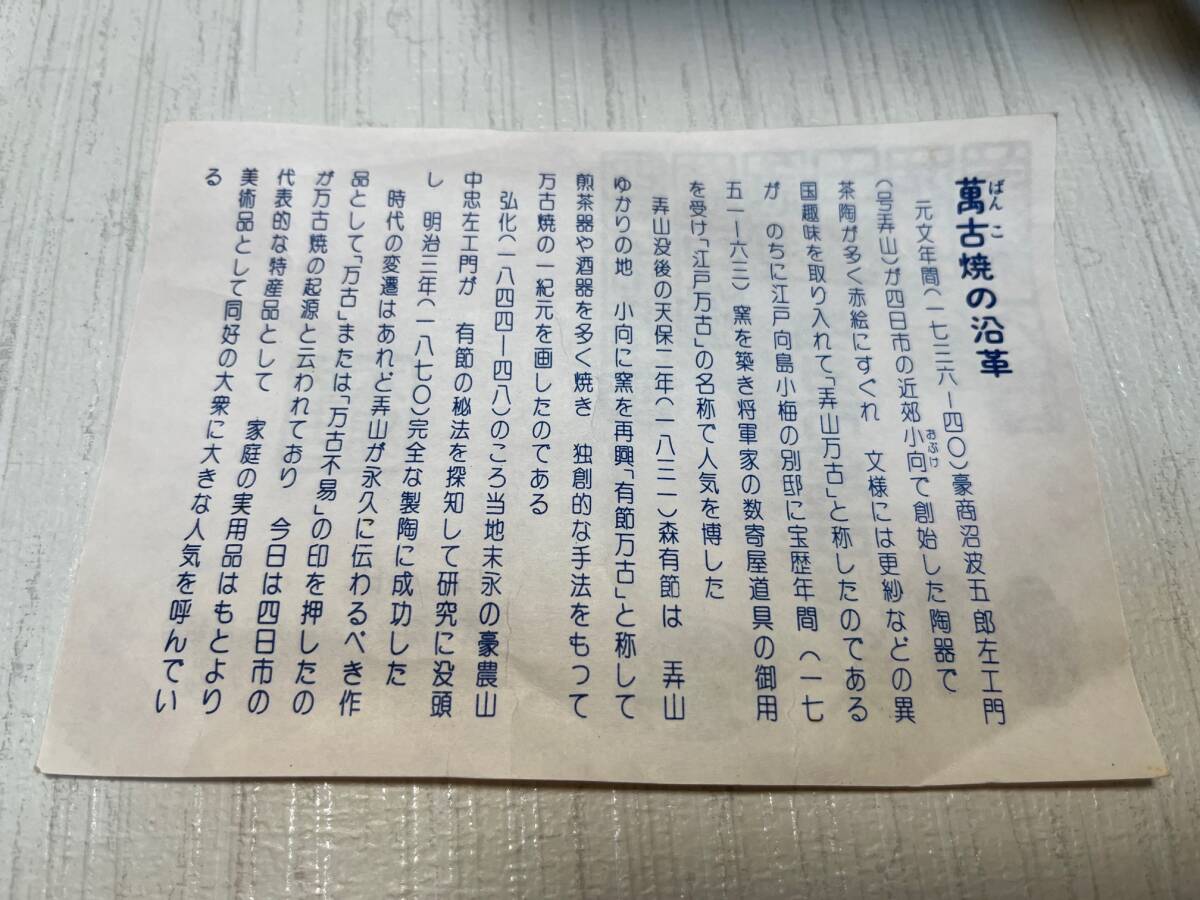 萬古焼の沿革
ばんこ
元文年間(一七三六ー四〇)豪商沼波五郎左工門
(号弄山)が四日市の近郊小向で創始した陶器で
おぶけ
茶陶が多く赤絵にすぐれ 文様には更紗などの異
国趣味を取り入れて「弄山万古」と称したのである
が のちに江戸向島小梅の別邸に宝歴年間(一七
五一ー六三)窯を築き将軍家の数寄屋道具の御用
を受け「江戸万古」の名称で人気を博した
弄山没後の天保二年(一八三一)森有節は 弄山
ゆかりの地 小向に窯を再興「有節万古」と称して
煎茶器や酒器を多く焼き 独創的な手法をもって
万古焼の一紀元を画したのである
弘化(一八四四ー四八)のころ当地末永の豪農山
中忠左工門が 有節の秘法を探知して研究に没頭
し 明治三年(一八七〇)完全な製陶に成功した
時代の変遷はあれど弄山が永久に伝わるべき作
品として「万古」または「万古不易」の印を押したの
が万古焼の起源と云われており 今日は四日市の
代表的な特産品として 家庭の実用品はもとより
美術品として同好の大衆に大きな人気を呼んでい
る